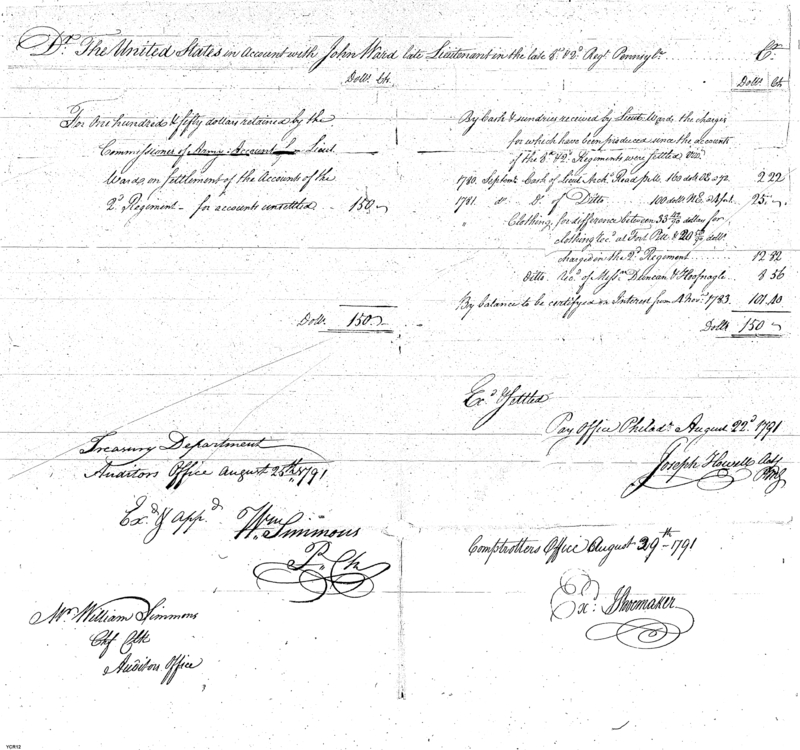 Dr. The United States in Account with John Ward late Lieutenant in the late 8th & 2d Regt. Pennsylva. Cr.
Dolls. Cts.
For One hundred & fifty dollars retained by the
Commissioner of Army Accounts from Lieut
Ward, on settlement of the Account of the
2d Regiment - for accounts unsettled 150 -
Dolls. 150 -
Dolls Cts
By Cash & sundries received by Lieut. Ward, the charges
for which have been produced since the accounts
of the 8th & 2d Regiments were settled Viz.
1780. Septemr. Cash of Lieut Archd. Read pr. 160 dolls @ 72 2 22
1781. do. Do. of Ditto 100 dolls N.E. 25 -
Clothing, for difference between 33 dollars for
clothing recd. at Fort Pitt & 20 dolls.
charged in the 2d Regiment 12 82
Ditto recd. of Messrs. Duncan & Hoofnagle 8 56
By balance to be certifyed on Interest from 4 Novr. 1783 101 40
Dolls 150 -
Exd. & Settled
Pay Office Philada. August 22d. 1791
Joseph Howell
Treasury Department
Auditors Office August 25th 1791
Exd. & appd.
Wm. Simmons
P. Clk
Comptrollers Office August 29th - 1791
Exd. JShoemaker
Mr. William Simmons
Chf Clk
Auditors Office
YCR12